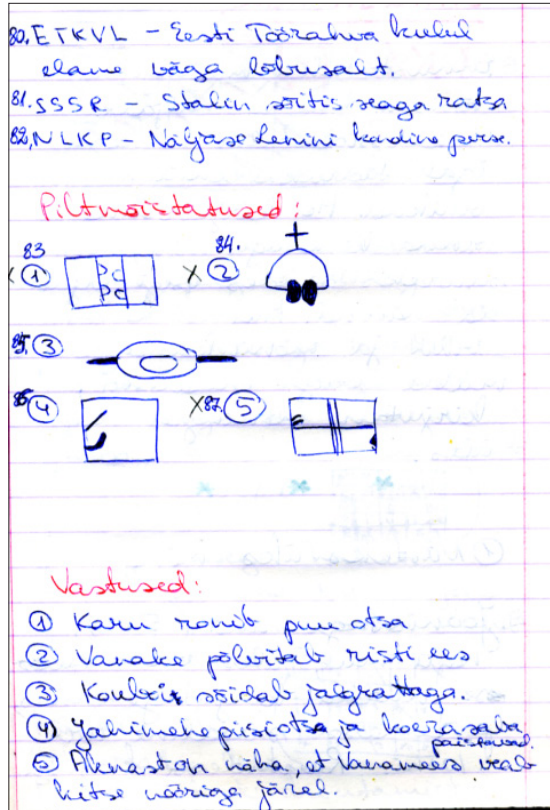 80. ETKVL – Eesti Töörahva kulul
elame väga lõbusalt.
81. SSSR – Stalin sõitis seaga ratsa
82. NLKP – Näljase Lenini kondine perse.
Piltmõistatused:
83 84.
X 1 X 2
85. 3
86 4 X 87. 5
Vastused:
1 Karu ronib puu otsa
2 Vanake põlvitab risti ees
3 sõidab jalgrattaga.
4 Jahimehe püssiotsa ja koerasaba
paistavad.
5 Aknast on näha, et Vanamees veab
kitse nööriga järel.